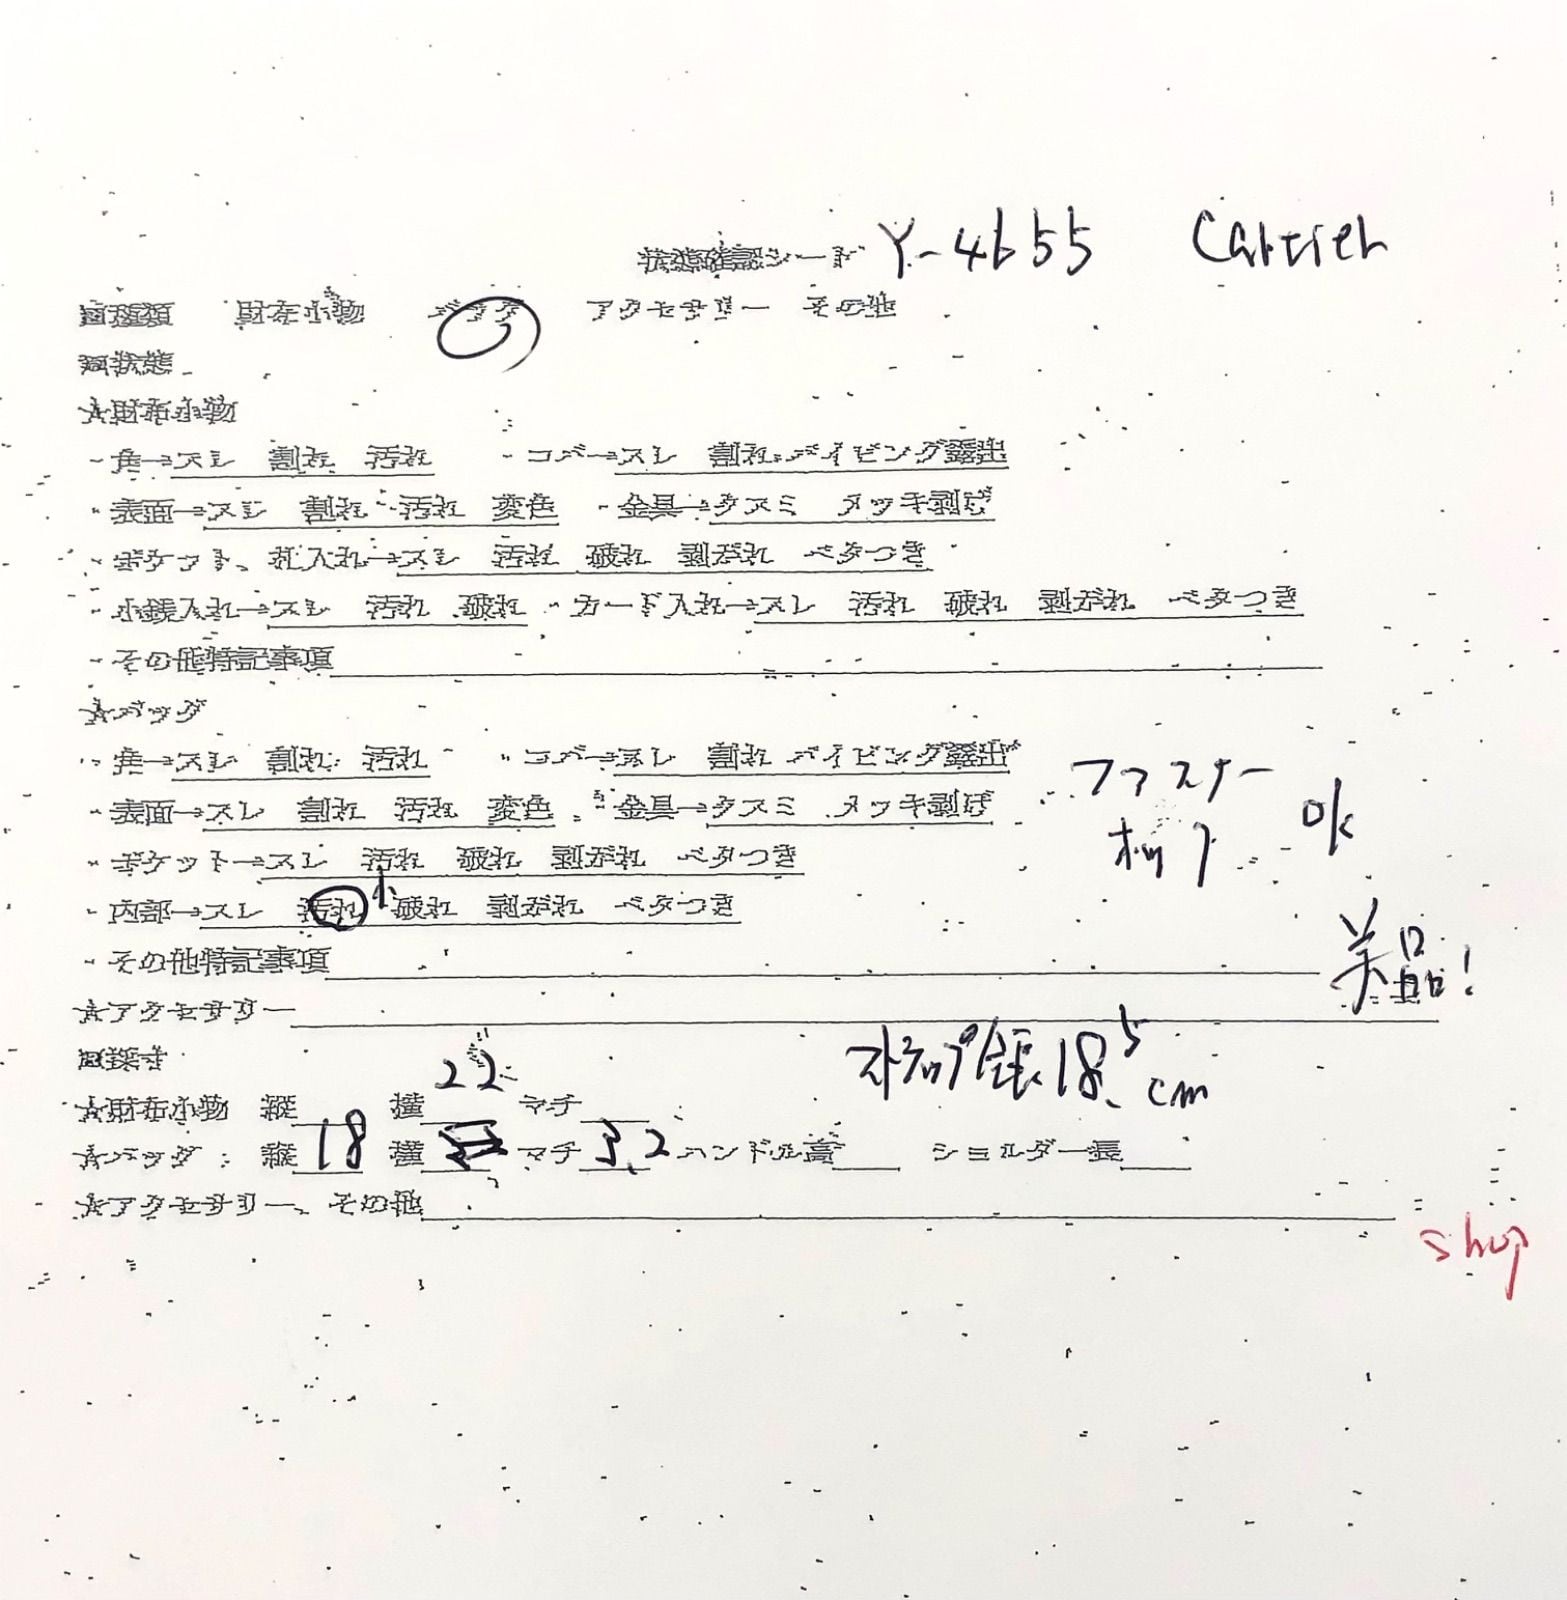 状態確認シート Y-4655 Cartier
□種類 財布小物 バッグ アクセサリー その他
□状態
☆財布小物
・角→スレ 割れ 汚れ ・コバ→スレ 割れ パイピング露出
・表面→スレ 割れ 汚れ 変色 ・金具→クスミ メッキ剥げ
・ポケット、札入れ→スレ 汚れ 破れ 剥がれ ベタつき
・小銭入れ→スレ 汚れ 破れ ・カード入れ→スレ 汚れ 破れ 剥がれ ベタつき
・その他特記事項
☆バッグ
・角→スレ 割れ 汚れ ・コバ→スレ 割れ パイピング露出
・表面→スレ 割れ 汚れ 変色 ・金具→クスミ メッキ剥げ
ファスナー
ok
・ポケット→スレ 汚れ 破れ 剥がれ ベタつき
・内部→スレ 汚れ 小 破れ 剥がれ ベタつき
・その他特記事項
美品!
☆アクセサリー
□採寸
22
全長 18.5 cm
☆財布小物 縦 横 マチ
☆バッグ: 縦 18 横 マチ 3.2 ハンドル高 ショルダー長
☆アクセサリー、その他
shop